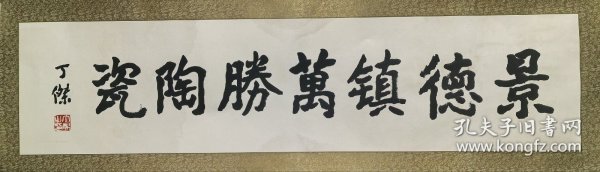 景德镇萬勝陶瓷
丁傑
孔夫子旧书网
www.kongfz.com